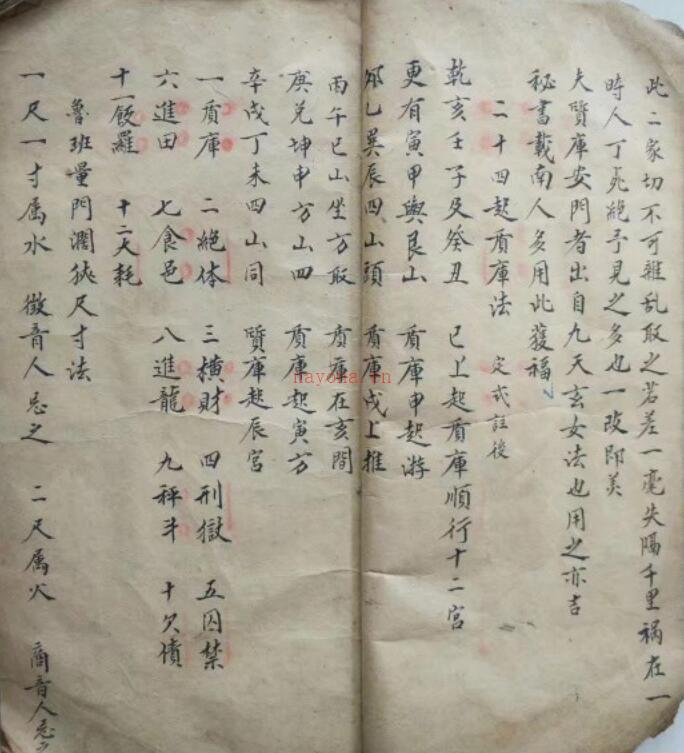 此二家切不可雜乱取之若差一毫失隔千里祸在一
時人丁死絕予見之多也一改即美
夫質庫安門者出自九天玄女法也用之亦吉
秘書載南人多用此獲福
二十四起質庫法 定式註後
乾亥壬子及癸丑 巳上起質庫順行十二宮
更有寅甲與艮山 質庫申起游
卯乙巽辰四山頭 質庫戌上推
丙午巳山坐方取 質庫在亥間
庚兌坤申方山四 質庫起寅方
辛戌丁未四山同 質庫起辰宮
一質庫 二絕体 三橫財 四刑獄 五囚禁
六進田 七食邑 八進龍 九秤斗 十欠債
十一飯羅 十二大耗
魯班量門濶狹尺寸法
一尺一寸属水 徵音人忌之 二尺属火 商音人忌之
nayona.cn